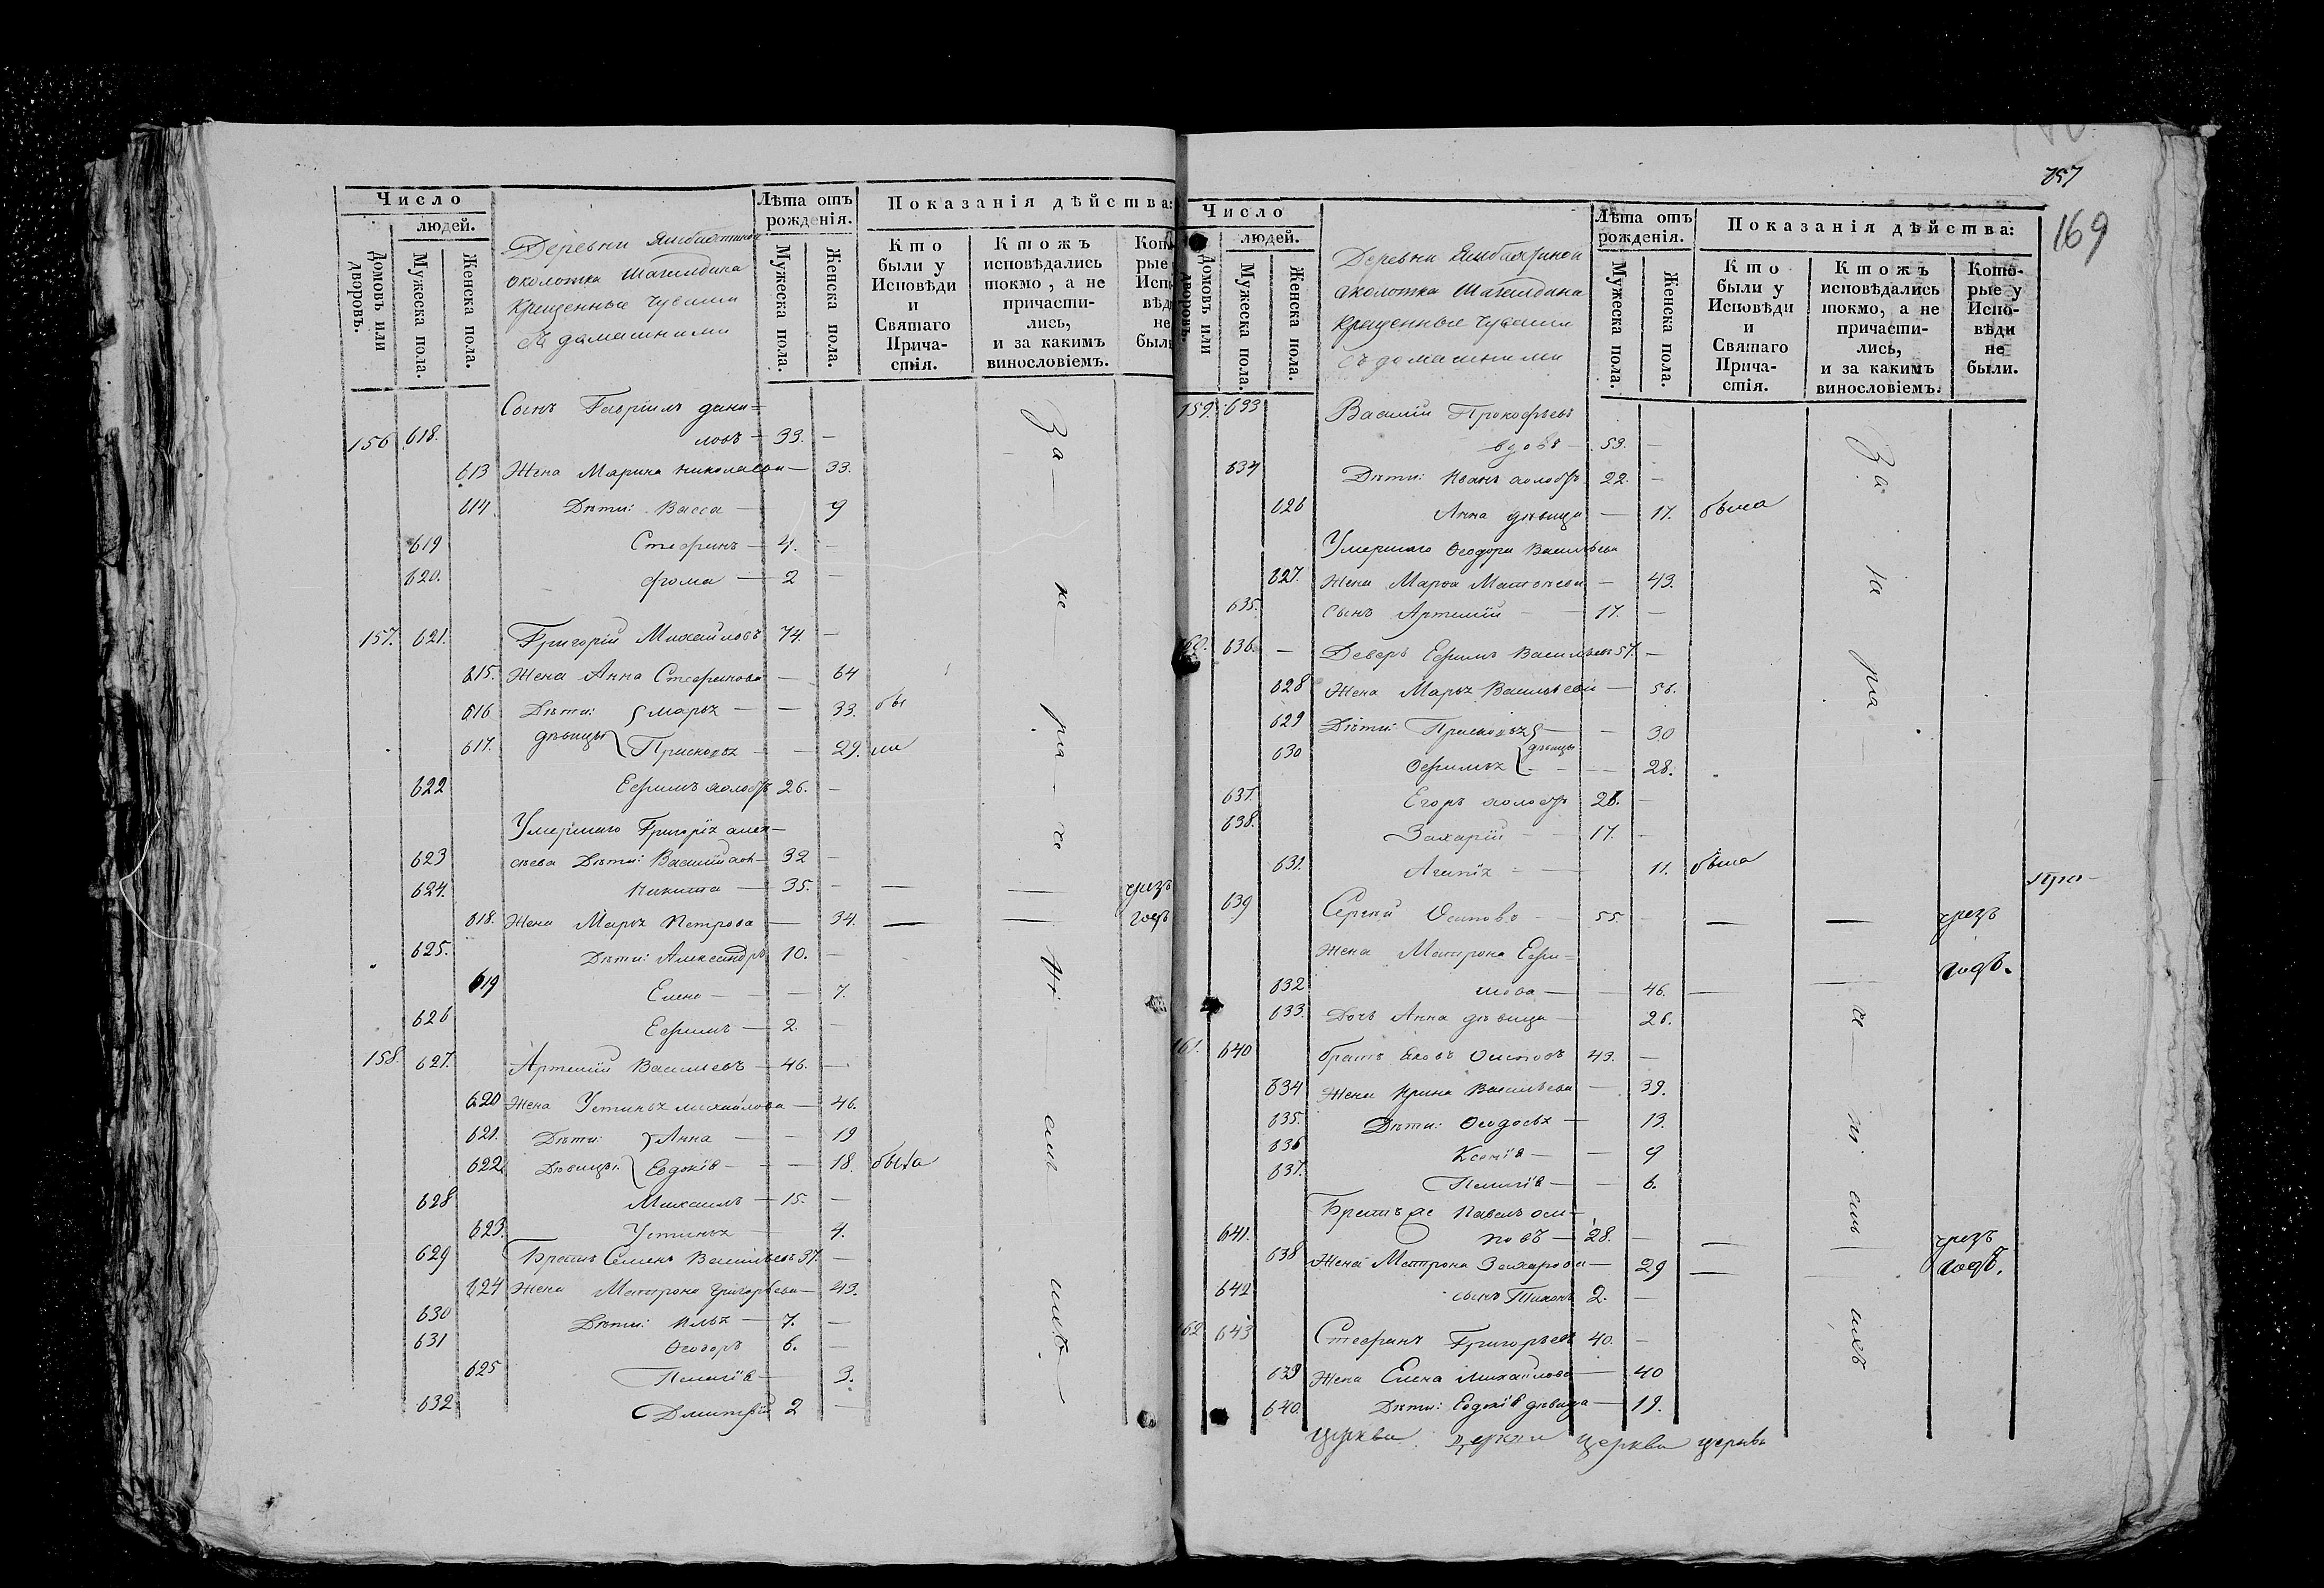 Число
людей.
Домовъ или дворовъ.
Мужеска пола.
Женска пола.
Деревни
околотка Шагилдина
крещенные Чуваши
съ домашними
Лѣта отъ рожденія.
Мужеска пола.
Женска пола.
Показанія дѣйства:
Кто были у Исповѣди и Святаго Причастія.
Ктожъ исповѣдались токмо, а не причастились, и за какимъ винословіемъ.
Сынъ Гавріилъ Дани=
156 618. ловъ — 33. —
613 Жена Марина Николаева — 33.
614. Дѣти: Васса — 9
619 Стефанъ — 4. —
620. Фома — 2 —
157. 621. Григорій Михайловъ 74. —
615. Жена Анна Стефанова — 64
616 Дѣти: Марья — — 33. бы
617. дѣвицы Прасковья — — 29. ли
622 Ефимъ холостъ 26. —
Умершаго Григорія Алек-
623 сѣева Дѣти: Василій — 32 —
624. Никита — 35. — — — чрезъ
618. Жена Марья Петрова — 34. — — годъ
625. Дѣти: Александръ 10. —
619 Елена — — 7.
626 Ефимъ — 2. —
158. 627. Артемій Васильевъ — 46. —
620 Жена Устинья Михайлова — 46.
621. Дѣти: Анна — — 19
622. Дѣвицы: Евдокія — — 18. была
628 Михаилъ — 15. —
623. Устинья — 4.
629 Братъ Семенъ Васильевъ 37. —
624 Жена Матрона Григорьева — 43.
630 Дѣти: Илья — 7. —
631 Ѳеодоръ 6. —
625 Пелагія — 3.
632 Дмитрій 2 —
За не ра че ні емъ
757
169
Число
людей.
Домовъ или дворовъ.
Мужеска пола.
Женска пола.
Деревни
околотка Шагилдина
крещенные Чуваши
съ домашними
Лѣта отъ рожденія.
Мужеска пола.
Женска пола.
Показанія дѣйства:
Кто были у Исповѣди и Святаго Причастія.
Ктожъ исповѣдались токмо, а не причастились, и за какимъ винословіемъ.
Которые у Исповѣди не были.
159. 633 Василій Прокофьевъ
вдовъ — 53. —
634 Дѣти: Иванъ холостъ 22. —
626 Анна дѣвица — 17. была
Умершаго Ѳеодора Васильева
627. Жена Марѳа Матвѣева — 43.
635. Сынъ Артемій — 17. —
160. 636. — Деверь Ефимъ Васильевъ 57. —
628 Жена Марья Васильева — 56.
629 Дѣти: Прасковья — — 30
630 дѣвицы — 28.
637. Егоръ холостъ 26. —
638. Захарій — 17. —
631. Агапія — 11. была
639 Сергей Осиповъ — 55. — — — чрезъ
Жена Матрона Ефи=
годъ.
632 мова — — 46. —
633. Дочь Анна дѣвица — 26.
161. 640 Братъ Яковъ Осиповъ 43. —
634 Жена Ирина Васильева — 39.
635. Дѣти: Ѳеодосья — 13.
636 Ксенія — — 9
637. Пелагія — — 6.
Братъ же Павелъ Оси-
641. повъ — 28. — — чрезъ
638 Жена Матрона Захарова — 29 — годъ.
642 сынъ Тихонъ 2. —
162 643 Стефанъ Григорьевъ 40. —
639 Жена Елена Михайлова — 40
640. Дѣти: Евдокія дѣвица — 19.
церкви церкви церкви церкви